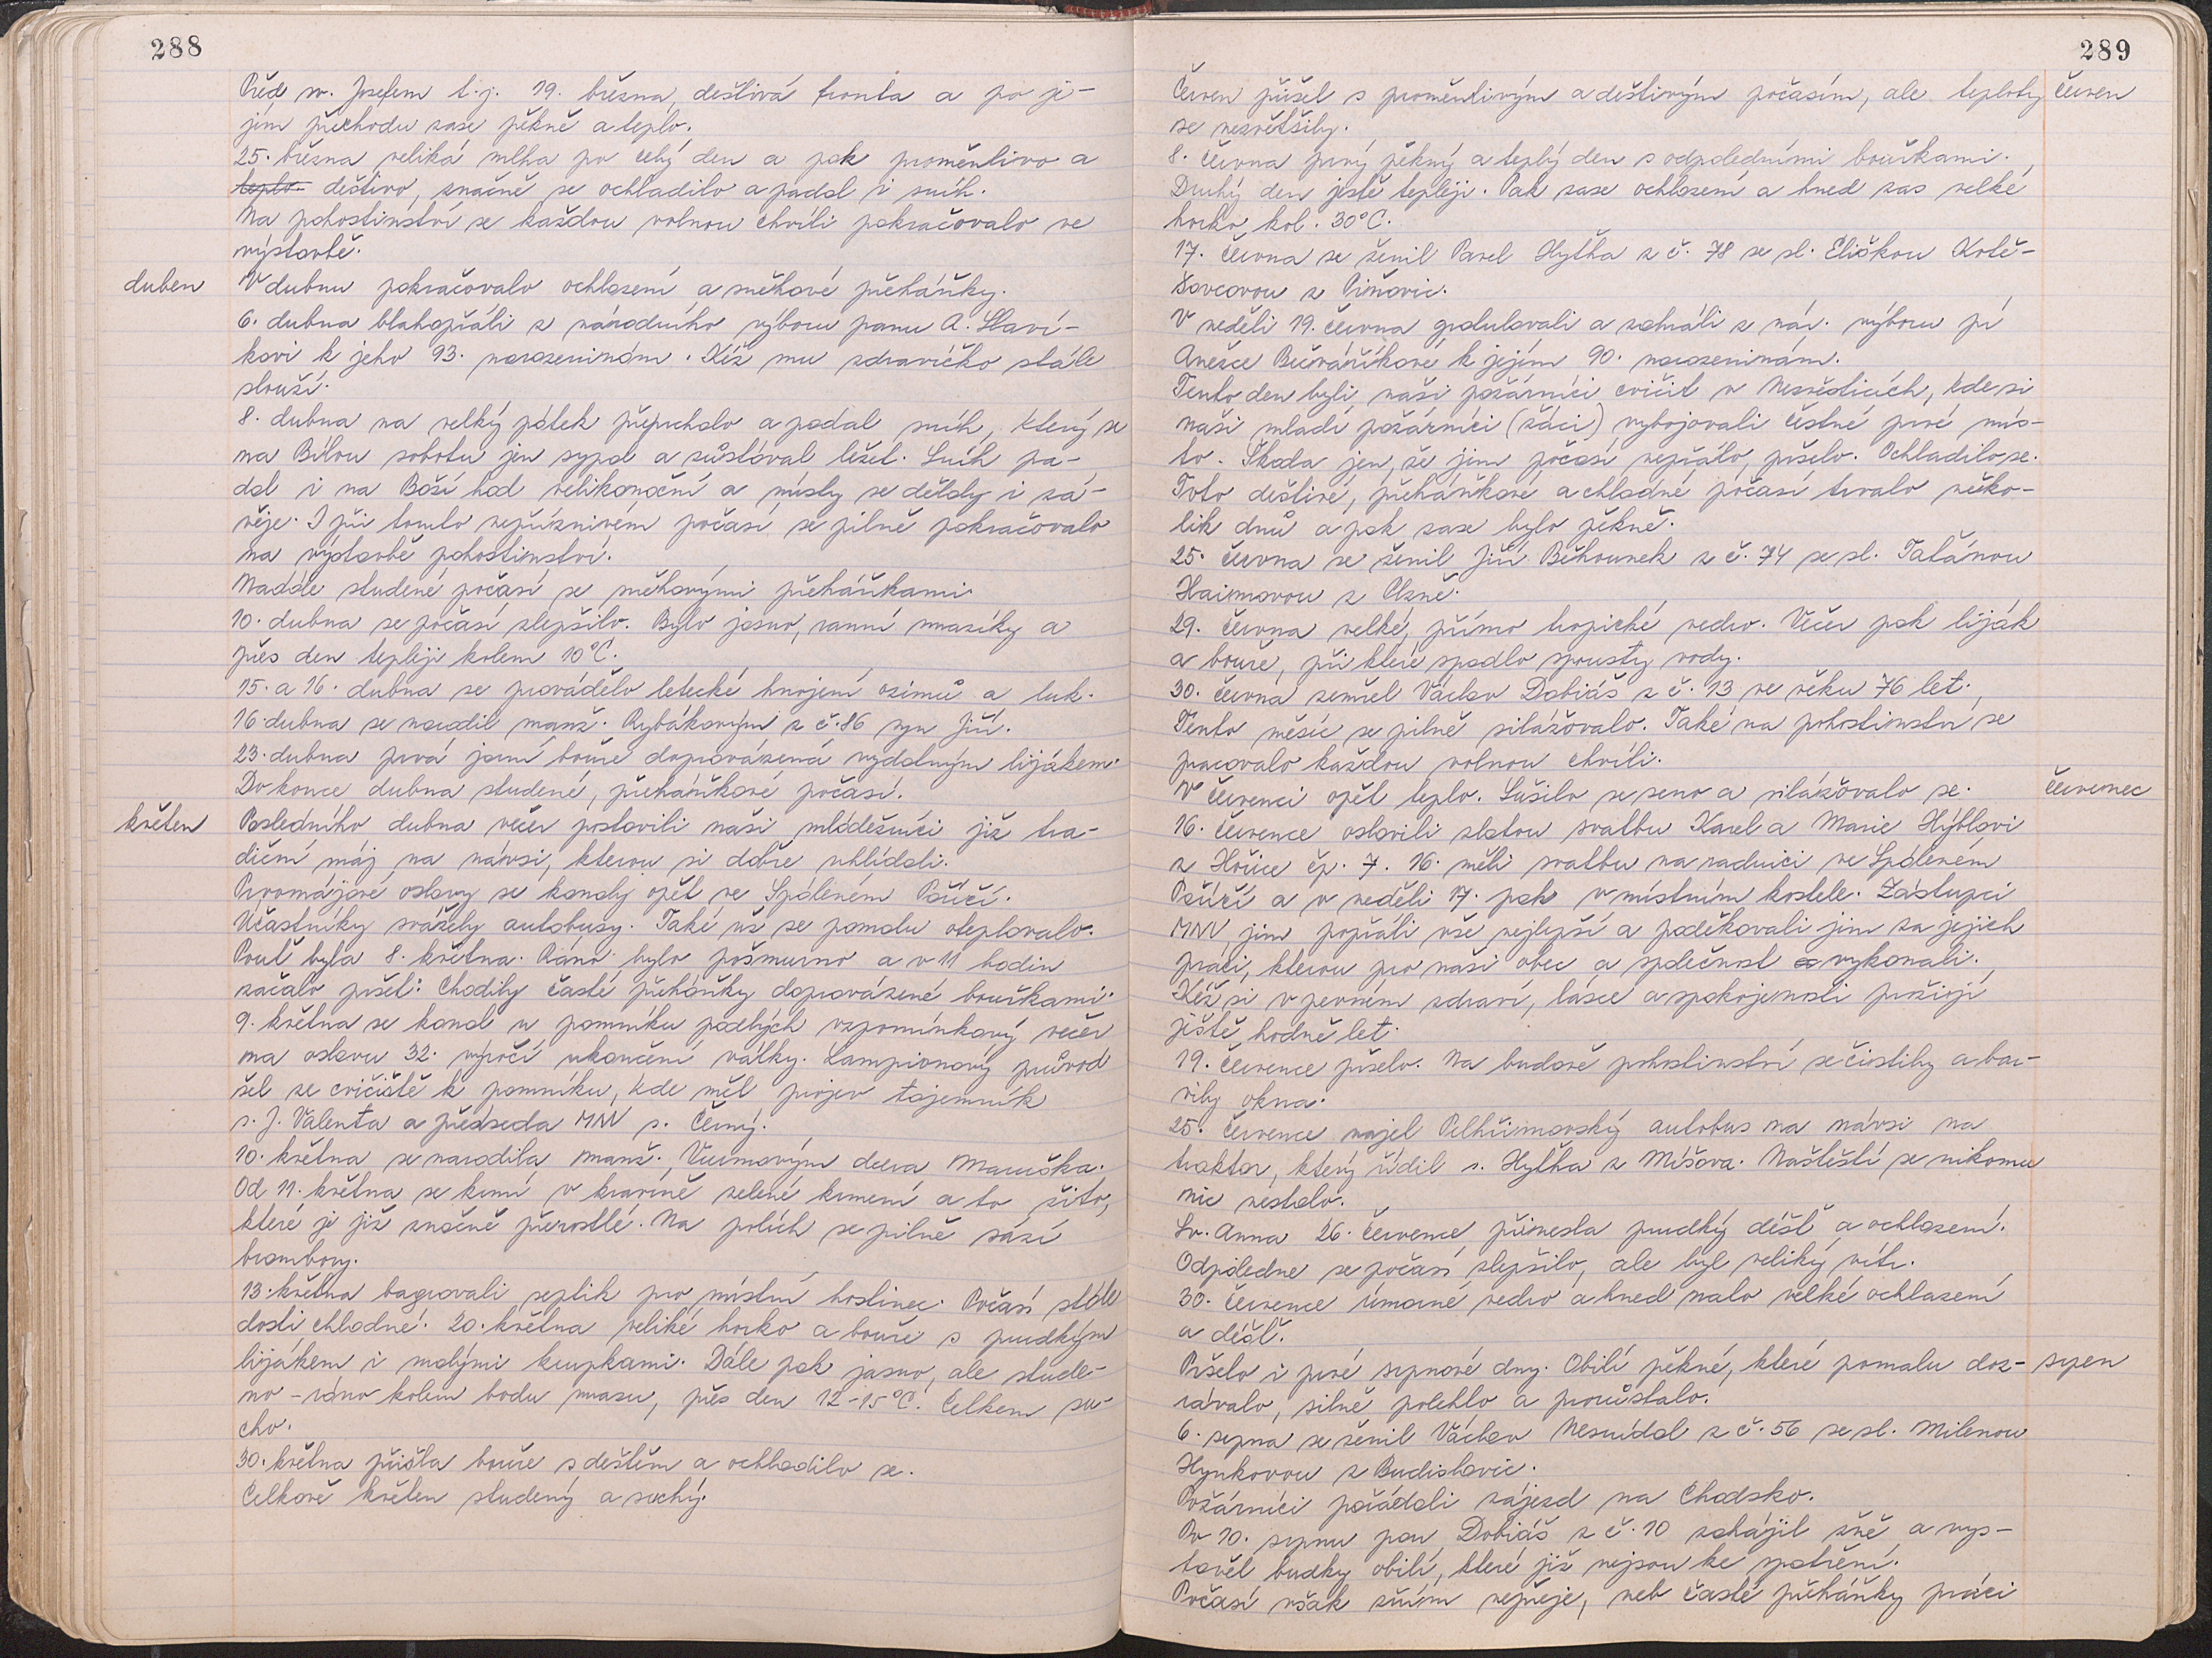 288
Před sv. Josefem t.j. 19. března, deštivá fronta a po je-
jím přechodu zase pěkně a teplo.
25. března veliká mlha po celý den a pak proměnlivo a
teplo deštivo, značně se ochladilo a padal i sníh.
Na pohostinství se každou volnou chvíli pokračovalo ve
výstavbě.
duben
V dubnu pokračovalo ochlazení a sněhové přeháňky.
6. dubna blahopřáli z národního výboru panu A. Slaví-
kovi k jeho 93. narozeninám. Kéž mu zdravíčko stále
slouží.
8. dubna na velký pátek přeprchalo a padal sníh, který se
na Bílou sobotu jen sypal a zůstával ležet. Sníh pa-
dal i na Boží hod velikonoční a místy se dělaly i zá-
věje. I při tomto nepříznivém počasí se pilně pokračovalo
na výstavbě pohostinství.
Nadále studené počasí se sněhovými přeháňkami.
10. dubna se počasí zlepšilo. Bylo jasno, ranní mrazíky a
přes den tepleji kolem 10°C.
15. a 16. dubna se provádělo letecké hnojení ozimů a luk.
16. dubna se narodil manž. Rybákovým z č. 86 syn Jiří.
23. dubna prvá jarní bouře doprovázená vydatným lijákem.
Do konce dubna studené, přeháňkové počasí.
květen
Posledního dubna večer postavili naši mládežníci již tra-
diční máj na návsi, kterou si dobře uhlídali.
Prvomájové oslavy se konaly opět ve Spáleném Poříčí.
Účastníky svážely autobusy. Také už se pomalu oteplovalo.
Pouť byla 8. května. Ráno bylo pošmurno a v 11 hodin
začalo pršet. Chodily časté přeháňky doprovázené bouřkami.
9. května se konal u pomníku padlých vzpomínkový večer
na oslavu 32. výročí ukončení války. Lampionový průvod
šel ze cvičiště k pomníku, kde měl projev tajemník
s. J. Valenta a předseda MNV s. Černý.
10. května se narodila manž. Vurmovým dcera Maruška.
Od 11. května se krmí v kravíně zelené krmení a to žito,
které je již značně přerostlé. Na polích se pilně sází
brambory.
13. května bagrovali septik pro místní hostinec. Počasí stále
dosti chladné. 20. května veliké horko a bouře s prudkým
lijákem i malými kroupkami. Dále pak jasno, ale stude-
no - ráno kolem bodu mrazu, přes den 12-15°C. Celkem su-
cho.
30. května přišla bouře s deštěm a ochladilo se.
Celkově květen studený a suchý.
289
Červen přišel s proměnlivým a deštivým počasím, ale teploty
červen
se nezvětšily.
8. června prvý pěkný a teplý den s odpoledními bouřkami.
Druhý den ještě tepleji. Pak zase ochlazení a hned zas velké
horko kol. 30°C.
17. června se ženil Pavel Hytha z č. 78 se sl. Eliškou Kotě-
šovcovou z Piňovic.
V neděli 19. června gratulovali a zahráli z nár. výboru pí
Anežce Bučváříkové k jejím 90. narozeninám.
Tento den byli naši požárníci cvičit v Nezvěsticích, kde si
naši mladí požárníci (žáci) vybojovali čestné prvé mís-
to. Škoda jen, že jim počasí nepřálo, pršelo. Ochladilo se.
Toto deštivé, přeháňkové a chladné počasí trvalo něko-
lik dnů a pak zase bylo pěkně.
25. června se ženil Jiří Běhounek z č. 74 se sl. Taťánou
Haimovou z Plzně.
29. června velké, přímo tropické vedro. Večer pak liják
a bouře, při které spadlo spousty vody.
30. června zemřel Václav Dobiáš z č. 13 ve věku 76 let.
Tento měsíc se pilně silážovalo. Také na pohostinství se
pracovalo každou volnou chvíli.
V červenci opět teplo. Sušilo se seno a silážovalo se.
červenec
16. července oslavili zlatou svatbu Karel a Marie Hýblovi
z Hořice čp. 7. 16. měli svatbu na radnici ve Spáleném
Poříčí a v neděli 17. pak v místním kostele. Zástupci
MNV, jim popřáli vše nejlepší a poděkovali jim za jejich
práci, kterou pro naši obec a společnost vykonali.
Kéž si v pevném zdraví, lásce a spokojenosti prožijí
ještě hodně let.
19. července pršelo. Na budově pohostinství se čistily a bar-
vily okna.
25. července najel Pelhřimovský autobus na návsi na
traktor, který řídil s. Hytha z Míšova. Naštěstí se nikomu
nic nestalo.
Sv. Anna 26. července přinesla prudký déšť a ochlazení.
Odpoledne se počasí zlepšilo, ale byl veliký vítr.
30. července úmorné vedro a hned nato velké ochlazení
a déšť.
Pršelo i prvé srpnové dny. Obilí pěkné, které pomalu doz-
srpen
rávalo, silně polehlo a prorůstalo.
6. srpna se ženil Václav Nesnídal z č. 56 se sl. Milenou
Hynkovou z Budislavic.
Požárníci pořádali zájezd na Chodsko.
Po 10. srpnu pan Dobiáš z č. 10 zahájil žně a vys-
tavěl budky obilí, které již nejsou ke spatření.
Počasí však žním nepřeje, neb časté přeháňky práci